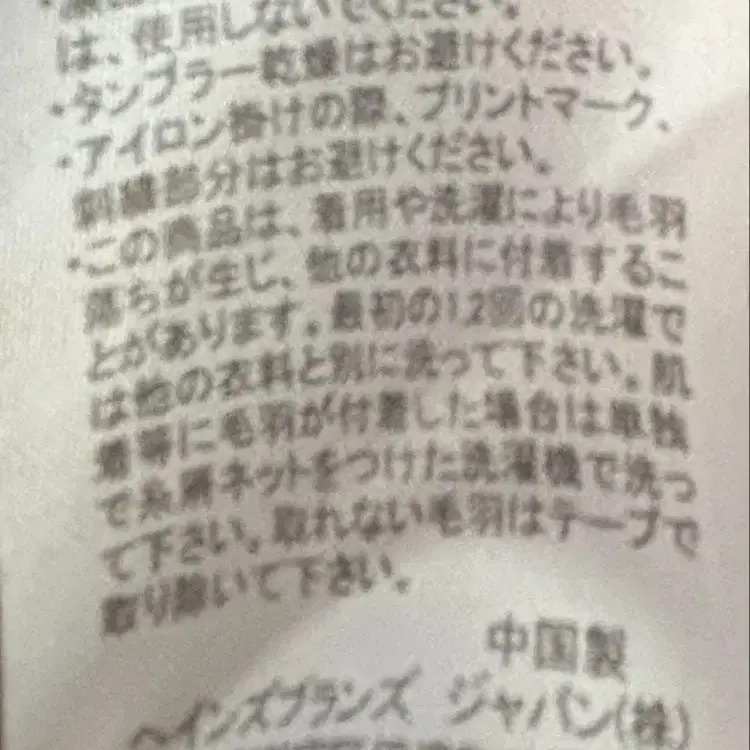 は、使用しないでください。
・タンブラー乾燥はお避けください。
・アイロン掛けの際、プリントマーク、
刺繍部分はお避けください。
・この商品は、着用や洗濯により毛羽
落ちが生じ、他の衣料に付着するこ
とがあります。最初の1、2回の洗濯で
は他の衣料と別に洗って下さい。肌
着等に毛羽が付着した場合は単独
で糸屑ネットをつけた洗濯機で洗っ
て下さい。取れない毛羽はテープで
取り除いて下さい。
中国製
ヘインズブランズ ジャパン(株)